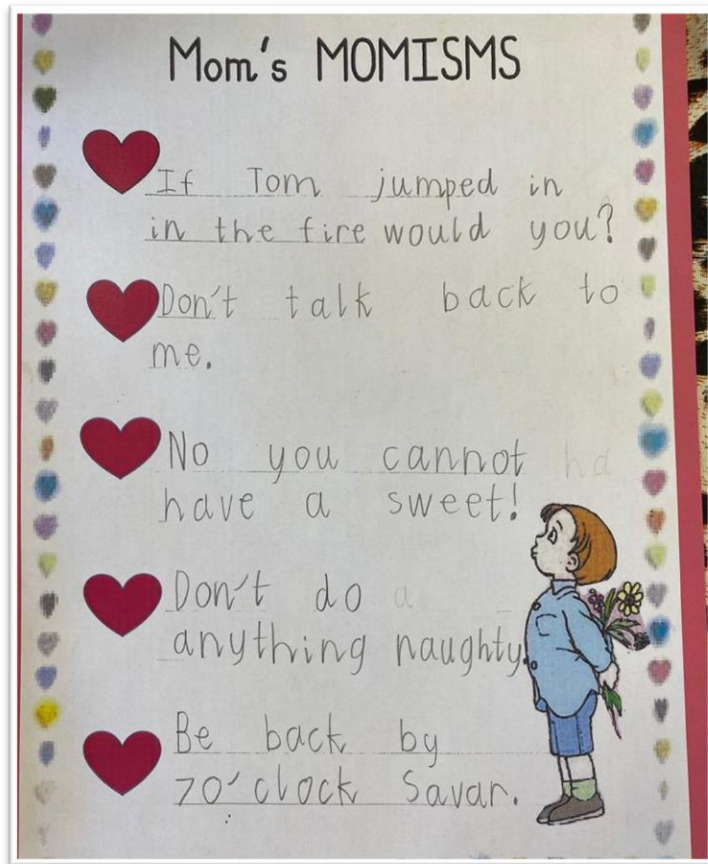 Mom's MOMISMS
If Tom jumped in
in the fire would you?
Don't talk back to
me.
No you cannot ha
have a sweet!
Don't do a
anything naughty.
Be back by
7O'clock Savar.